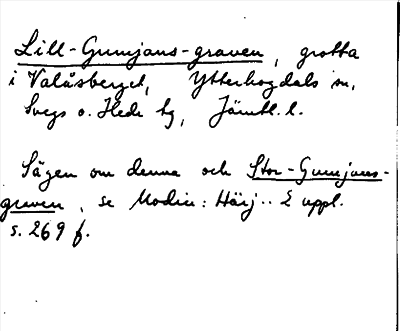 Lill-Gumjans-graven, grotta
i Valåsberget, Ytterhogdals sn,
Svegs o. Hede tg, Jämtl. l.
Sägen om denna och Stor-Gumjans-
graven, se Modin: Härj.. 2 uppl.
s. 269 f.